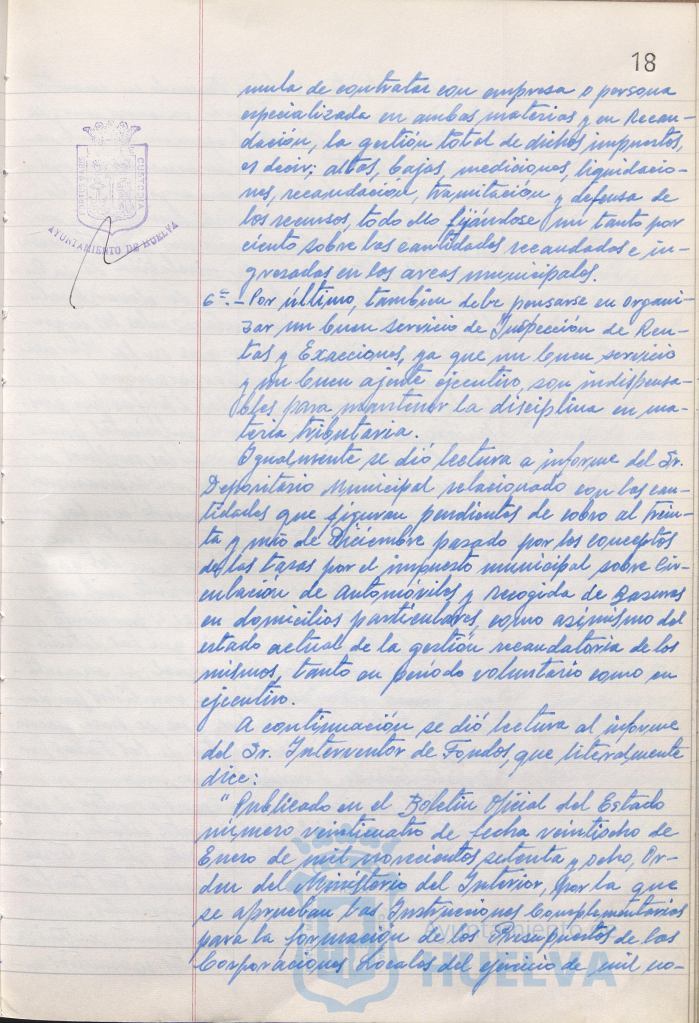 18
mula de contratar con empresa o persona
especializada en ambas materias y en Recau-
dación, la gestión total de dichos impuestos,
es decir; altas, bajas, mediciones, liquidacio-
nes, recaudación, tramitación y defensa de
los recursos, todo ello fijándose un tanto por
ciento sobre las cantidades recaudadas e in-
gresadas en las arcas municipales.
6º.- Por último, tambien debe pensarse en organi-
zar un buen servicio de Inspección de Ren-
tas y Exacciones, ya que un buen servicio
y un buen agente ejecutivo, son indispensa-
bles para mantener la disciplina en ma-
teria tributaria.
Igualmente se dió lectura a informe del Sr.
Depositario Municipal relacionado con las can-
tidades que figuran pendientes de cobro al trein-
ta y uno de Diciembre pasado por los conceptos
de las tasas por el impuesto municipal sobre Cir-
culación de Automóviles y Recogida de Basuras
en domicilios particulares, como asimismo del
estado actual de la gestión recaudatoria de los
mismos, tanto en período voluntario como en
ejecutivo.
A continuación se dió lectura al informe
del Sr. Interventor de Fondos, que literalmente
dice:
"Publicado en el Boletin Oficial del Estado
número veinticuatro de fecha veintiocho de
Enero de mil novecientos setenta y ocho, Or-
den del Ministerio del Interior, por la que
se aprueban las Instrucciones Complementarias
para la formación de los Presupuestos de las
Corporaciones Locales del ejercicio de mil no-
AYUNTAMIENTO DE HUELVA
Ayuntamiento de
HUELVA